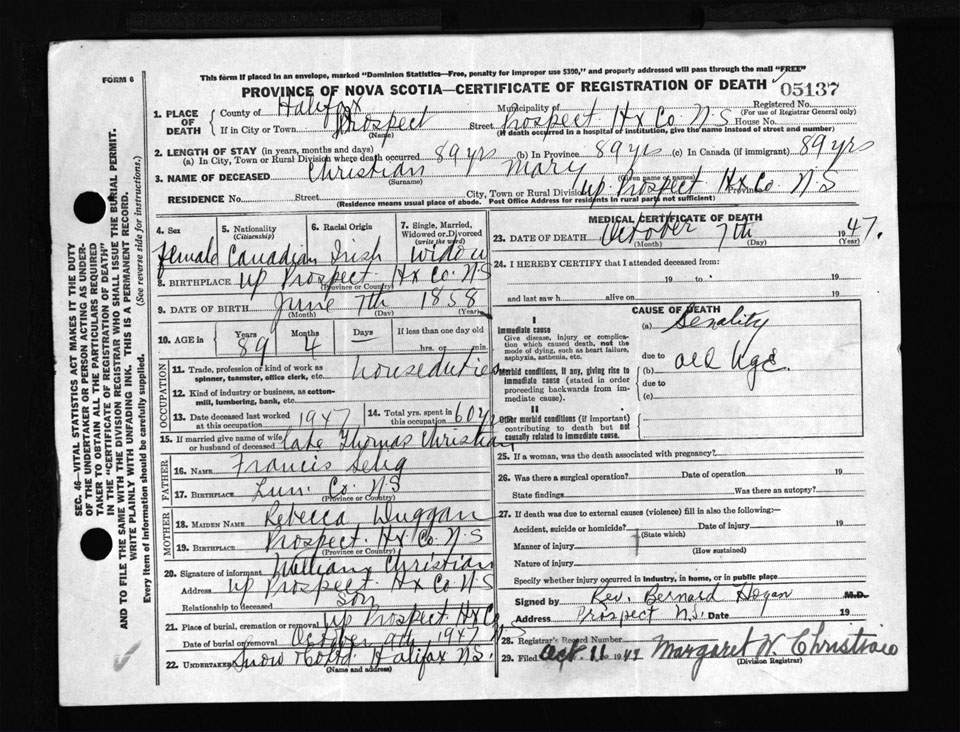 FORM 6
This form if placed in an envelope, marked "Dominion Statistics—Free, penalty for improper use $300," and properly addressed will pass through the mail "FREE"
PROVINCE OF NOVA SCOTIA—CERTIFICATE OF REGISTRATION OF DEATH
05137
SEC. 46—VITAL STATISTICS ACT MAKES IT THE DUTY
OF THE UNDERTAKER OR PERSON ACTING AS UNDER-
TAKER TO OBTAIN ALL THE PARTICULARS REQUIRED
IN THE "CERTIFICATE OF REGISTRATION OF DEATH"
AND TO FILE THE SAME WITH THE DIVISION REGISTRAR WHO SHALL ISSUE THE BURIAL PERMIT.
WRITE PLAINLY WITH UNFADING INK. THIS IS A PERMANENT RECORD.
Every item of information should be carefully supplied. (See reverse side for instructions.)
1. PLACE OF DEATH County of Halifax Municipality of Registered No.
(For use of Registrar General only)
If in City or Town Prospect Street Prospect Hx Co. N.S House No.
(Name) (If death occurred in a hospital of institution, give the name instead of street and number)
2. LENGTH OF STAY (in years, months and days)
(a) In City, Town or Rural Division where death occurred 89 yrs (b) In Province 89 yrs (c) In Canada (if immigrant) 89 yrs
3. NAME OF DECEASED Christian Mary
(Surname) (Given name or names)
RESIDENCE No. Street City, Town or Rural Division up. Prospect Hx Co. N S Province
(Residence means usual place of abode. Post Office Address for residents in rural parts not sufficient)
4. Sex 5. Nationality (Citizenship) 6. Racial Origin 7. Single, Married, Widowed or Divorced (write the word)
Female Canadian Irish Widow
8. BIRTHPLACE Up Prospect Hx Co. N S
(Province or Country)
9. DATE OF BIRTH June 7th 1858
(Month) (Day) (Year)
10. AGE in Years Months Days If less than one day old
89 4 — hrs. or min.
OCCUPATION
11. Trade, profession or kind of work as spinner, teamster, office clerk, etc. houseduties
12. Kind of industry or business, as cotton-mill, lumbering, bank, etc.
13. Date deceased last worked at this occupation 1947 14. Total yrs. spent in this occupation 60 yrs
15. If married give name of wife or husband of deceased Late Thomas Christian
FATHER
16. NAME Francis Selig
17. BIRTHPLACE Lun. Co. N S
(Province or Country)
MOTHER
18. MAIDEN NAME Rebecca Duggan
19. BIRTHPLACE Prospect. Hx Co. N S
(Province or Country)
20. Signature of informant William Christian
Address Up Prospect Hx Co N S
Relationship to deceased Son
21. Place of burial, cremation or removal Up Prospect Hx Co N S
Date of burial or removal October 9th 1947
22. UNDERTAKER Snow & Co Ltd. Halifax N.S.
(Name and address)
MEDICAL CERTIFICATE OF DEATH
23. DATE OF DEATH October 7th 1947.
(Month) (Day) (Year)
24. I HEREBY CERTIFY that I attended deceased from:
19 to 19
and last saw h alive on 19
CAUSE OF DEATH
I
Immediate cause
Give disease, injury or complication which caused death, not the mode of dying, such as heart failure, asphyxia, asthenia, etc.
(a) Senality
due to
Morbid conditions, if any, giving rise to immediate cause (stated in order proceeding backwards from immediate cause).
(b) Old Age.
due to
(c)
II
Other morbid conditions (if important) contributing to death but not causally related to immediate cause.
25. If a woman, was the death associated with pregnancy?
26. Was there a surgical operation? Date of operation 19
State findings Was there an autopsy?
27. If death was due to external causes (violence) fill in also the following:—
Accident, suicide or homicide? Date of injury 19
(State which)
Manner of injury
(How sustained)
Nature of injury
Specify whether injury occurred in industry, in home, or in public place
Signed by Rev. Bernard Hogan M.D.
Address Prospect N.S. Date 19
28. Registrar's Record Number
29. Filed Oct. 11 1947 Margaret W. Christian
(Division Registrar)